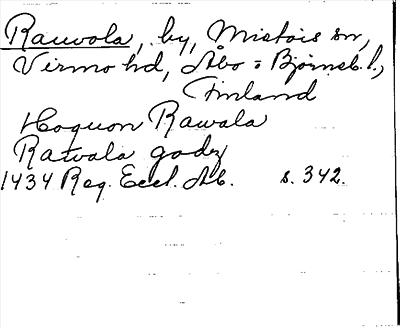 Rauvola, by, Mietois sn,
Virmo hd, Åbo = Björneb. l.,
Finland
Hoquon Rawala
Rawala godz
1434 Reg. Eccl. Ab. s. 342.